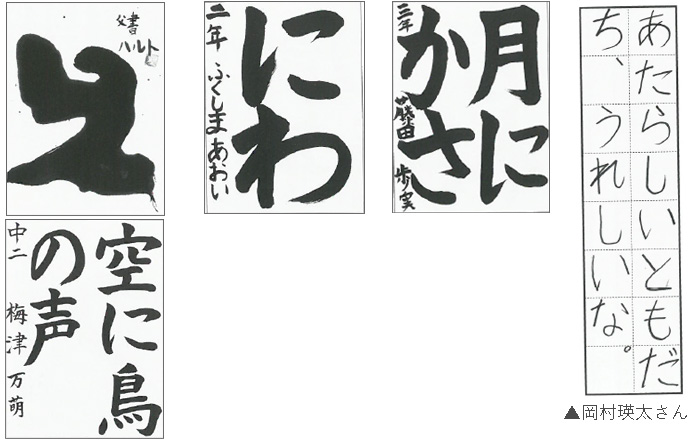 ハルト
にわ
二年 ふくしま あおい
月に
かさ
三年 藤田 歩実
あたらしいともだ
ち、うれしいな。
▲岡村瑛太さん
空に鳥
の声
中二 梅津 万萌